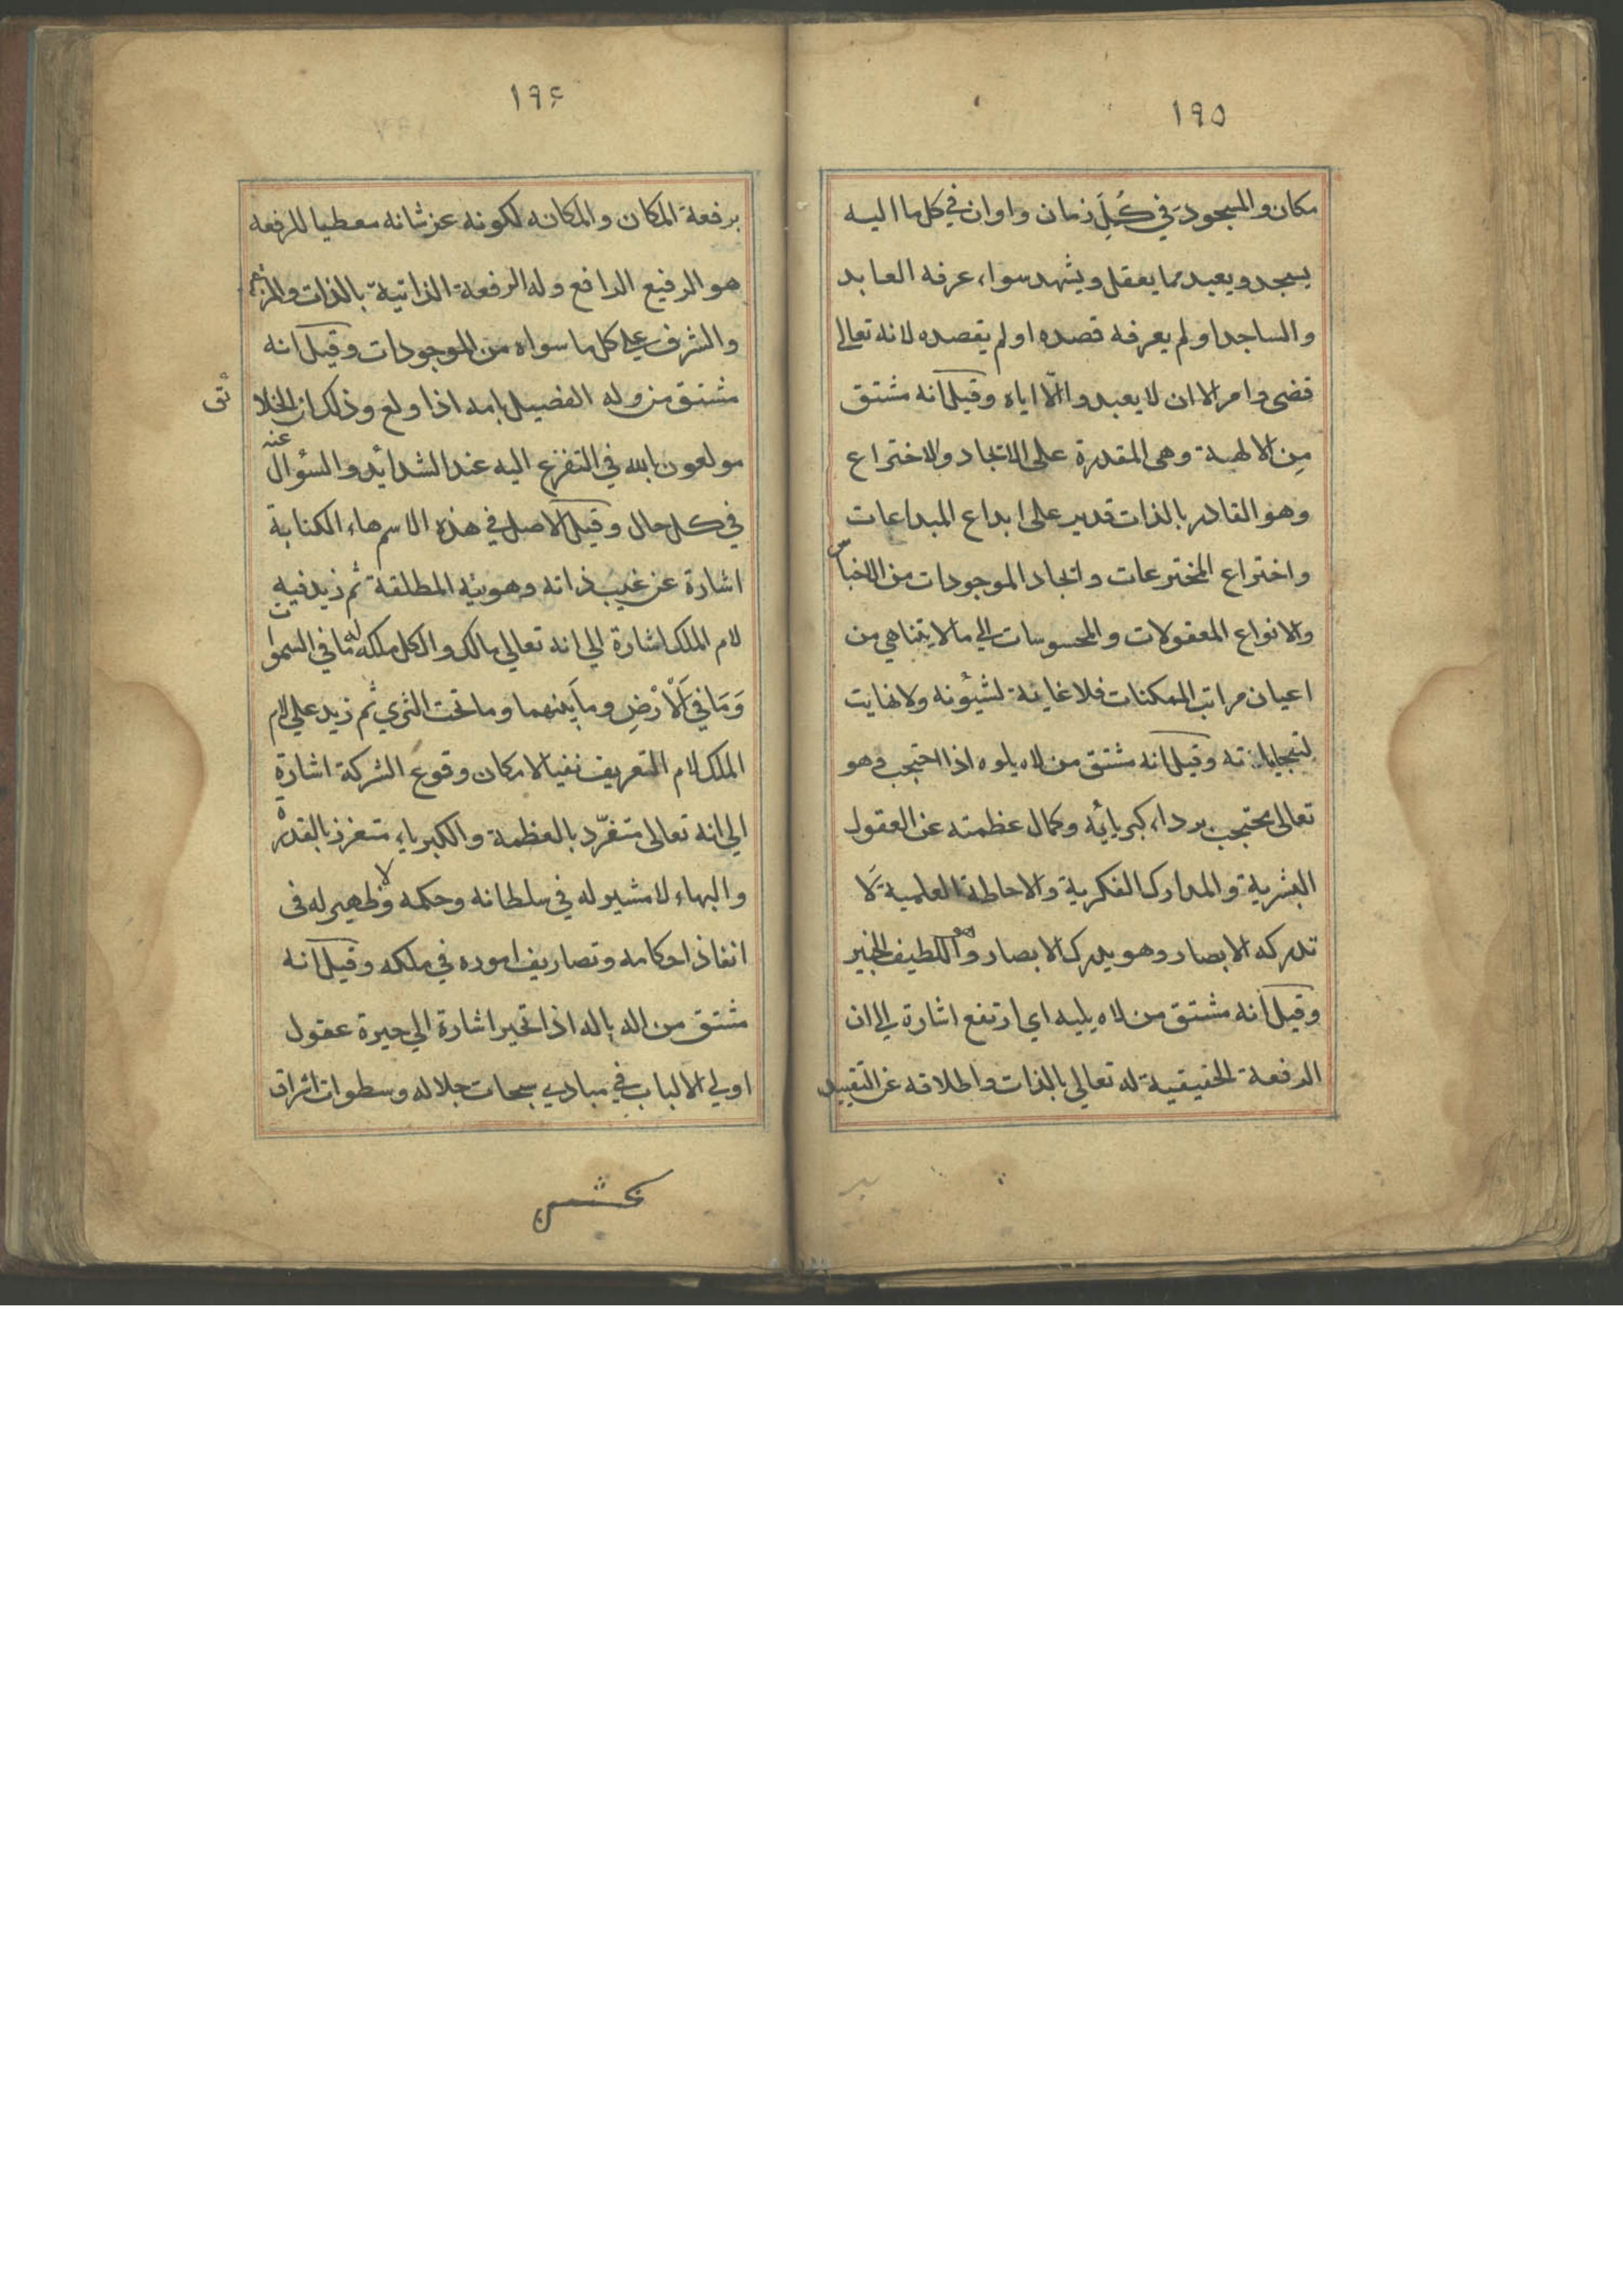 ١٩٥
مكان والمسجود في كُلِّ زمان واوان في كل ما اليه
يسجد ويعبد مما يعقل ويشهد سواء عرفه العابد
والساجد او لم يعرفه قصده او لم يقصده لانه تعالى
قضى وامر الا ان لا يعبدوا الّا اياه وقيل انه مشتق
مِن الالهية وهى المقدرة على الايجاد والاختراع
وهو القادر بالذات قدير على ابداع المبداعات
واختراع المخترعات وايجاد الموجودات من الاجناس
والانواع المعقولات والمحسوسات الي ما لا يتناهي من
اعيان مراتب الممكنات فلا غاية لشيؤنه ولا نهايت
لتجلياته وقيل انه مشتق من لاه يلوه اذا احتجب فهو
تعالى محتجب برداء كبريائه وكمال عظمته عن العقول
البشرية والمدارك الفكرية والاحاطة العلمية لَا
تدركه الابصار وهو يدرك الابصار وهو اللطيف الخبير
وقيل انه مشتق من لاه يليه اي ارتفع اشارة الى ان
الرفعة الحقيقية له تعالي بالذات واطلاقه عن التقييد
١٩۶
برفعة المكان والمكانه لكونه عز شانه معطيا للرفعه
هو الرفيع الرافع وله الرفعة الذاتية بالذات والمرتبه
والشرف على كل ما سواه من الموجودات وقيل انه
مشتق من وله الفصيل بامه اذا ولع وذلك ان الخلائق
مولعون بالله في التفزع اليه عند الشدائد والسؤال عنه
في كل حال وقيل الاصل في هذه الاسم هاء الكناية
اشارة عن غيب ذاته وهويته المطلقة ثم زيد فيه
لام الملك اشارة الي انه تعالي مالك والكل ملكه له ما في السموات
وَمَا في الْاَرْضِ وما بَينهما وما تحت الثري ثم زيد علي لام
الملك لام التعريف نفيا لامكان وقوع الشركة اشارة
الي انه تعالى متفرّد بالعظمة والكبرياء متعزز بالقدرة
والبهاء لا مشير له في سلطانه وحكمه ولا ظهير له فى
انفاذ احكامه وتصاريف اموره في ملكه وقيل انه
مشتق من اله ياله اذا تحير اشارة الي حيرة عقول
اولي الالباب في مبادي سبحات جلاله وسطوات اشراق